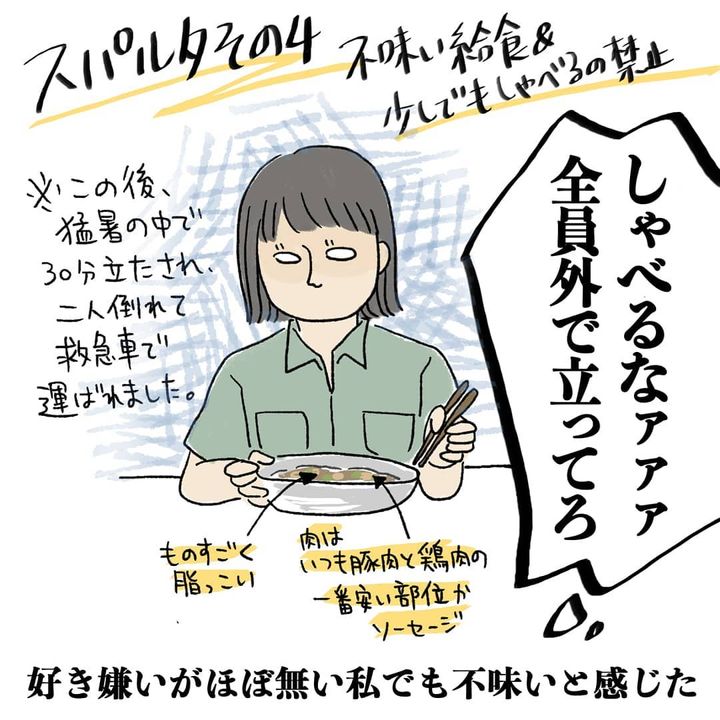 スパルタその4
不味い給食&
少しでもしゃべるの禁止
しゃべるなァァァ
全員外で立ってろ
※この後、
猛暑の中で
30分立たされ、
二人倒れて
救急車で
運ばれました。
ものすごく
脂っこい
肉は
いつも豚肉と鶏肉の
一番安い部位か
ソーセージ
好き嫌いがほぼ無い私でも不味いと感じた